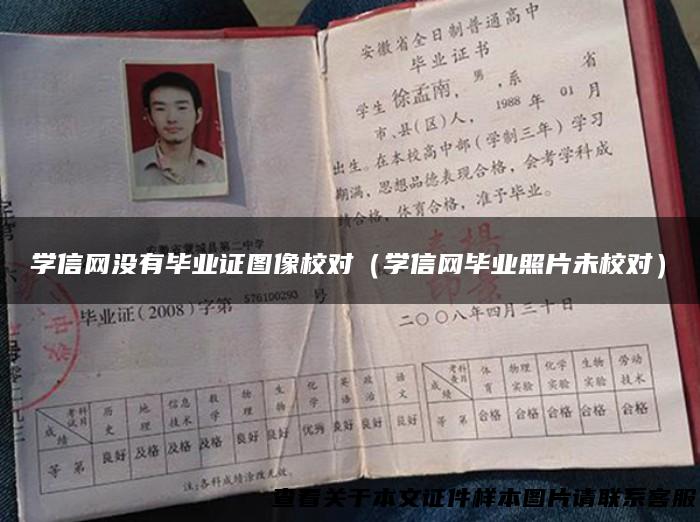 安徽省全日制普通高中
毕业证书
学生徐孟南，男，系 省
市、县(区)人，1988年01月
出生。在本校高中部(学制三年)学习
期满，思想品德表现合格，会考学科成
绩合格，体育合格，准予毕业。
安徽省蒙城县第二中学
学信网没有毕业证图像校对（学信网毕业照片未校对）
毕业证(2008)字第 576100293 号
二〇〇八年四月三十日
考试科目 成绩 历史 地理 信息技术 数学 物理 生物 化学 英语 政治 语文
等第 良好 及格 及格 及格 良好 良好 优秀 良好 良好 良好
注:各科成绩涂改无效。
考查科目 成绩 体育 物理实验 化学实验 生物实验 劳动技术
等第 合格 合格 合格 合格 合格
查看关于本文证件样本图片请联系客服